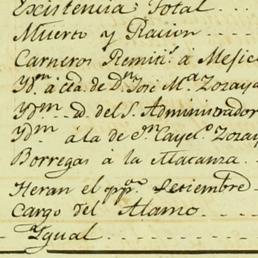 Existencia Total
Muerto y Racion
Carneros Remiti.s á Mejic
Ydm á cta. de D.n José M.a Zozaya
Ydm. id. del S. Administrador
Ydm á la de D.n Cayet.o Zozay
Borregas á la Matanza
Heran el pp.o Setiembre
Cargo del Alamo
Ygual